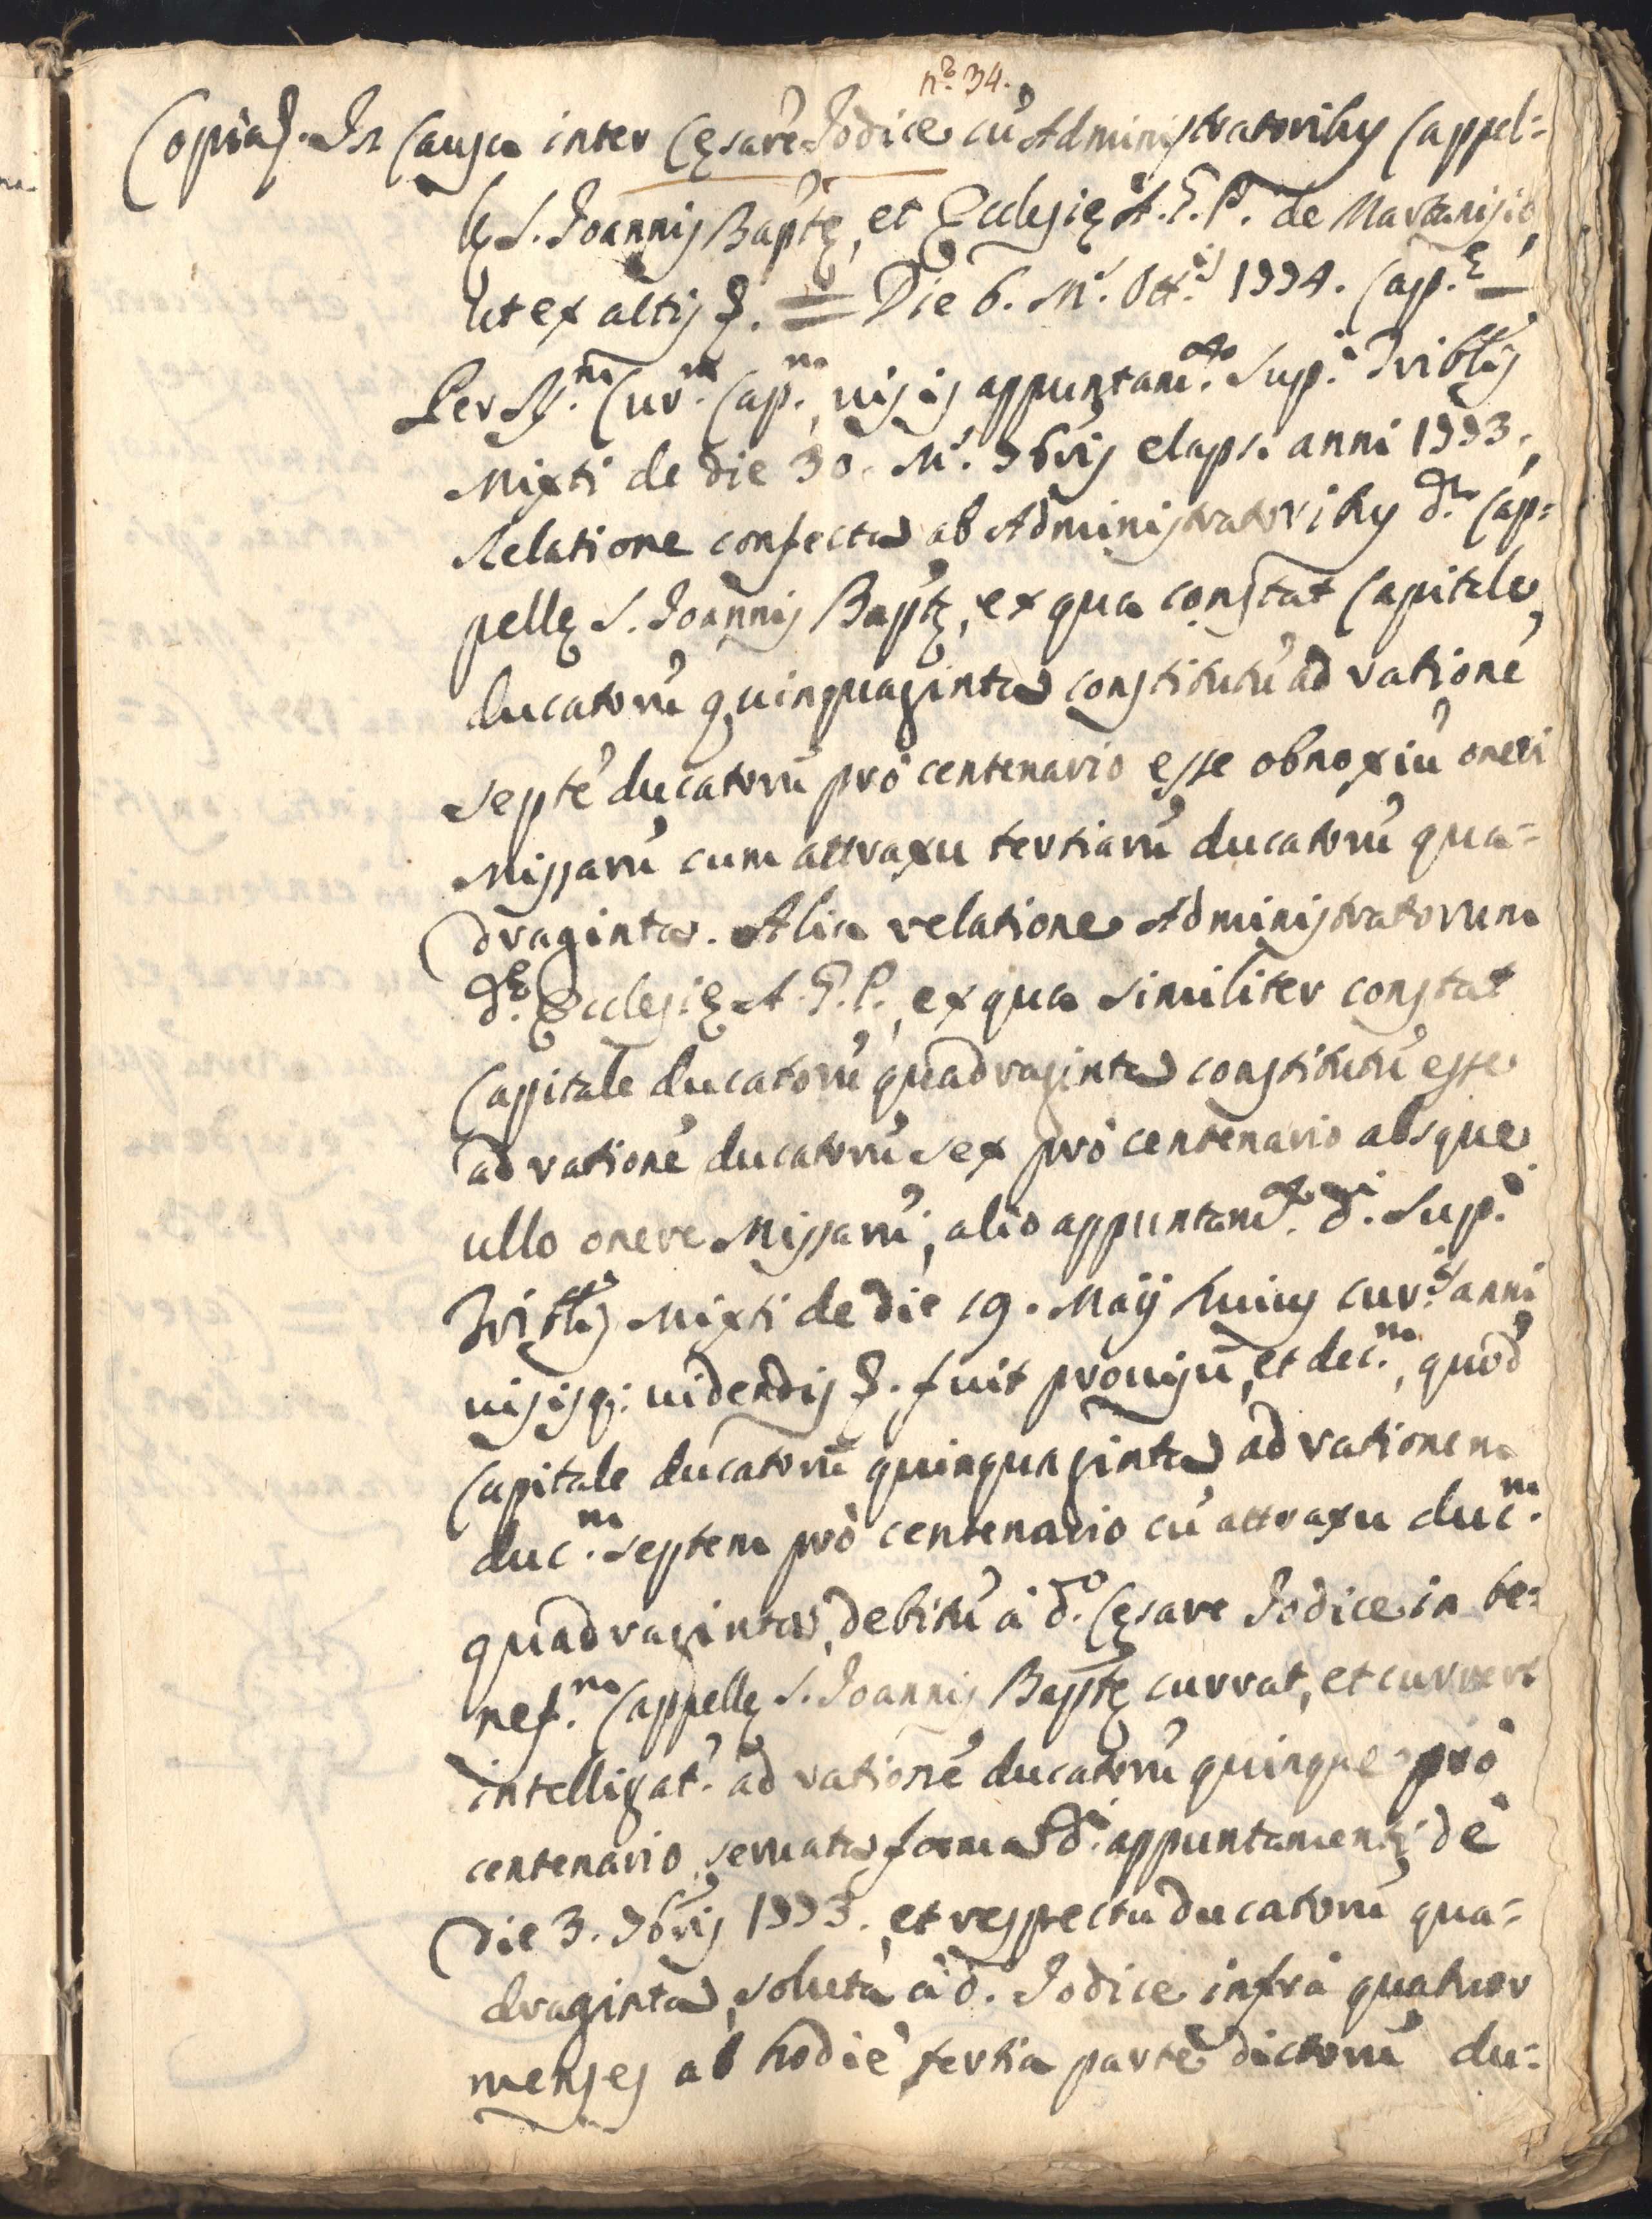 nº. 34.
Copia &. In Causa inter Cęsarē Iodice cū Administratoribus Cappel=
lę S. Joannis Baptę, et Ecclesię A. G. P. de Marcanisio,
ut ex altis &. = Die 6. M.s 8bris 1774. Cap.ę =
Per M.m Cur.m Cap.m, visis appuntam.to Sup.i Triblis
Mixti de die 30. M.s 9bris elaps. anni 1773,
Relatione confecta ab Administratoribus d.ę Cap=
pellę S. Joannis Baptę, ex qua constat Capitale
ducatorū quinquaginta constitutū ad rationē
septē ducatorū pro centenario esse obnoxiū oneri
Missarū cum attraxu tertiarū ducatorū qua=
draginta. Alia relatione Administratorum
d.ę Ecclesię A. G. P., ex qua similiter constat
Capitale ducatorū quadraginta constitutū esse
ad rationē ducatorū sex pro centenario absque
ullo onere Missarū; alio appuntam.to d.i Sup.i
Triblis Mixti de die 19. Maij huius cur.s anni
visisq; videndis &. fuit provisū, et dec.m, quod
Capitale ducatorū quinquaginta ad rationem
duc.m septem pro centenario cū attraxu duc.m
quadraginta, debitū à d.o Cęsare Iodice in be=
nef.m Cappellę S. Joannis Baptę currat, et currere
intelligat.r ad rationē ducatorū quinque pro
centenario, servata forma d.i appuntamenti de
die 3. 9bris 1773. et respectu ducatorū qua=
draginta, soluta à d. Iodice infra quatuor
menses ab hodie tertia parte dictorū du=